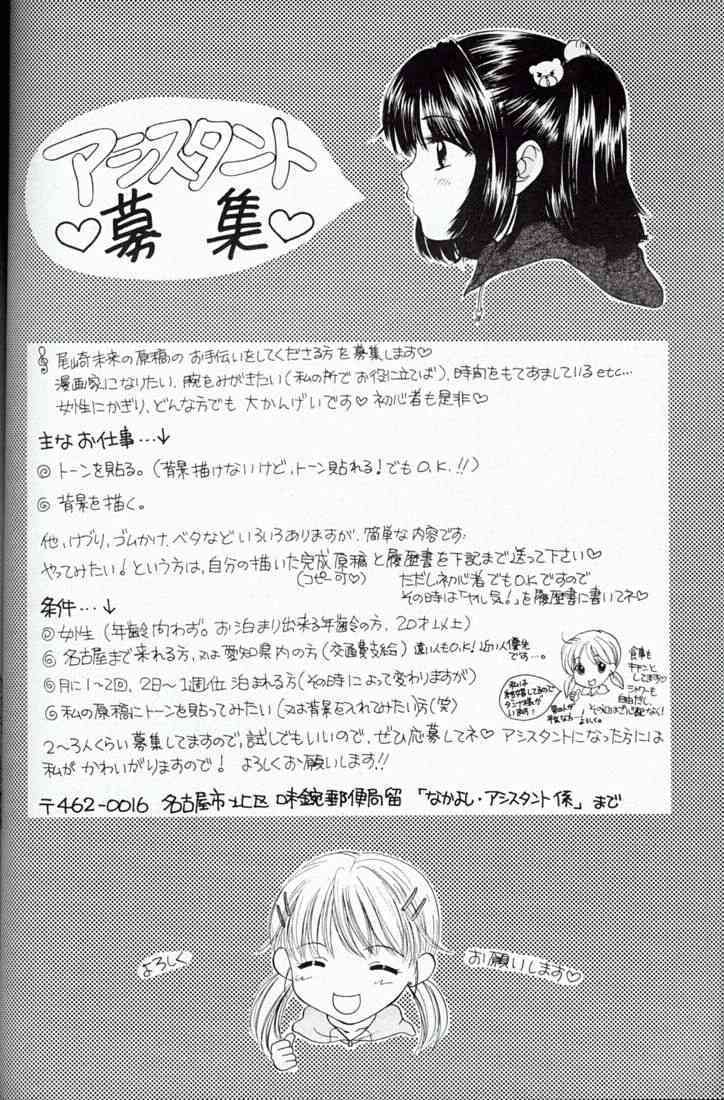 アシスタント
♡募集♡
尾崎未来の原稿の お手伝いをしてくださる方を募集します♡
漫画家になりたい、腕をみがきたい(私の所でお役に立てば)、時間をもてあましている etc…
女性にかぎり、どんな方でも 大かんげいです♡ 初心者も是非♡
主な お仕事…↓
◎ トーンを貼る。(背景描けないけど、トーン貼れる!でもO.K.!!)
◎ 背景を描く。
他、けづり、ゴムかけ、ベタなど いろいろありますが、簡単な内容です。
やってみたい!という方は、自分の描いた完成原稿と履歴書を下記まで送って下さい♡
(コピー可♡)
ただし初心者でもO.Kですので
その時は「ヤル気!」を履歴書に書いてネ♡
条件…↓
◎ 女性(年齢問わず。お泊まり出来る年齢の方、20才以上)
◎ 名古屋まで来れる方、又は愛知県内の方(交通費支給) 遠い人もO.K!近い人優先
です…。
◎ 月に1~2回、2日~1週位 泊まれる方(その時によって変わりますが)
◎ 私の原稿にトーンを貼ってみたい(又は背景を入れてみたい)方(笑)
食事も
キチンと
してます♡
シャワーも
自由だし、
私は
います!
よろしく。
2~3人くらい 募集してますので、試しでもいいので、ぜひ応募してネ♡ アシスタントになった方には
私が かわいがりますので! よろしくお願いします!!
〒462-0016 名古屋市北区 味鋺郵便局留 「なかよし・アシスタント係」まで
よろしく
お願いします♡